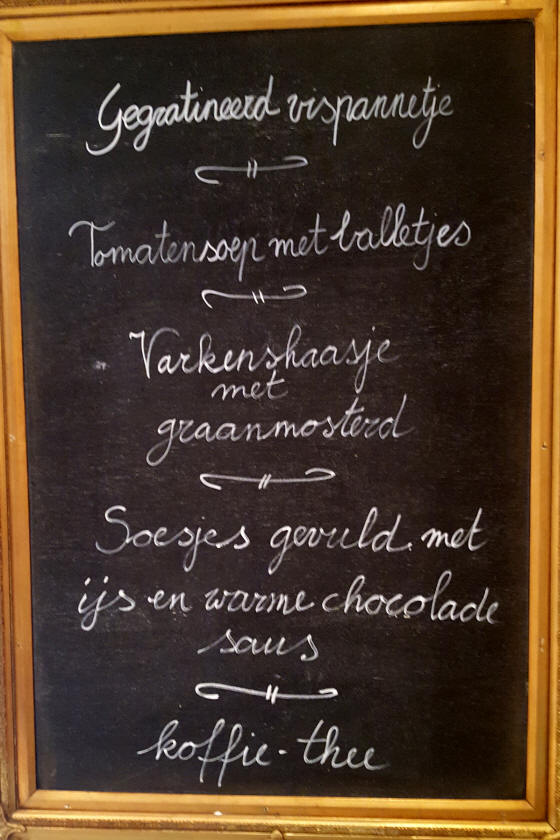 Gegratineerd vispannetje
Tomatensoep met balletjes
Varkenshaasje
met
graanmosterd
Soesjes gevuld met
ijs en warme chocolade
saus
koffie - thee